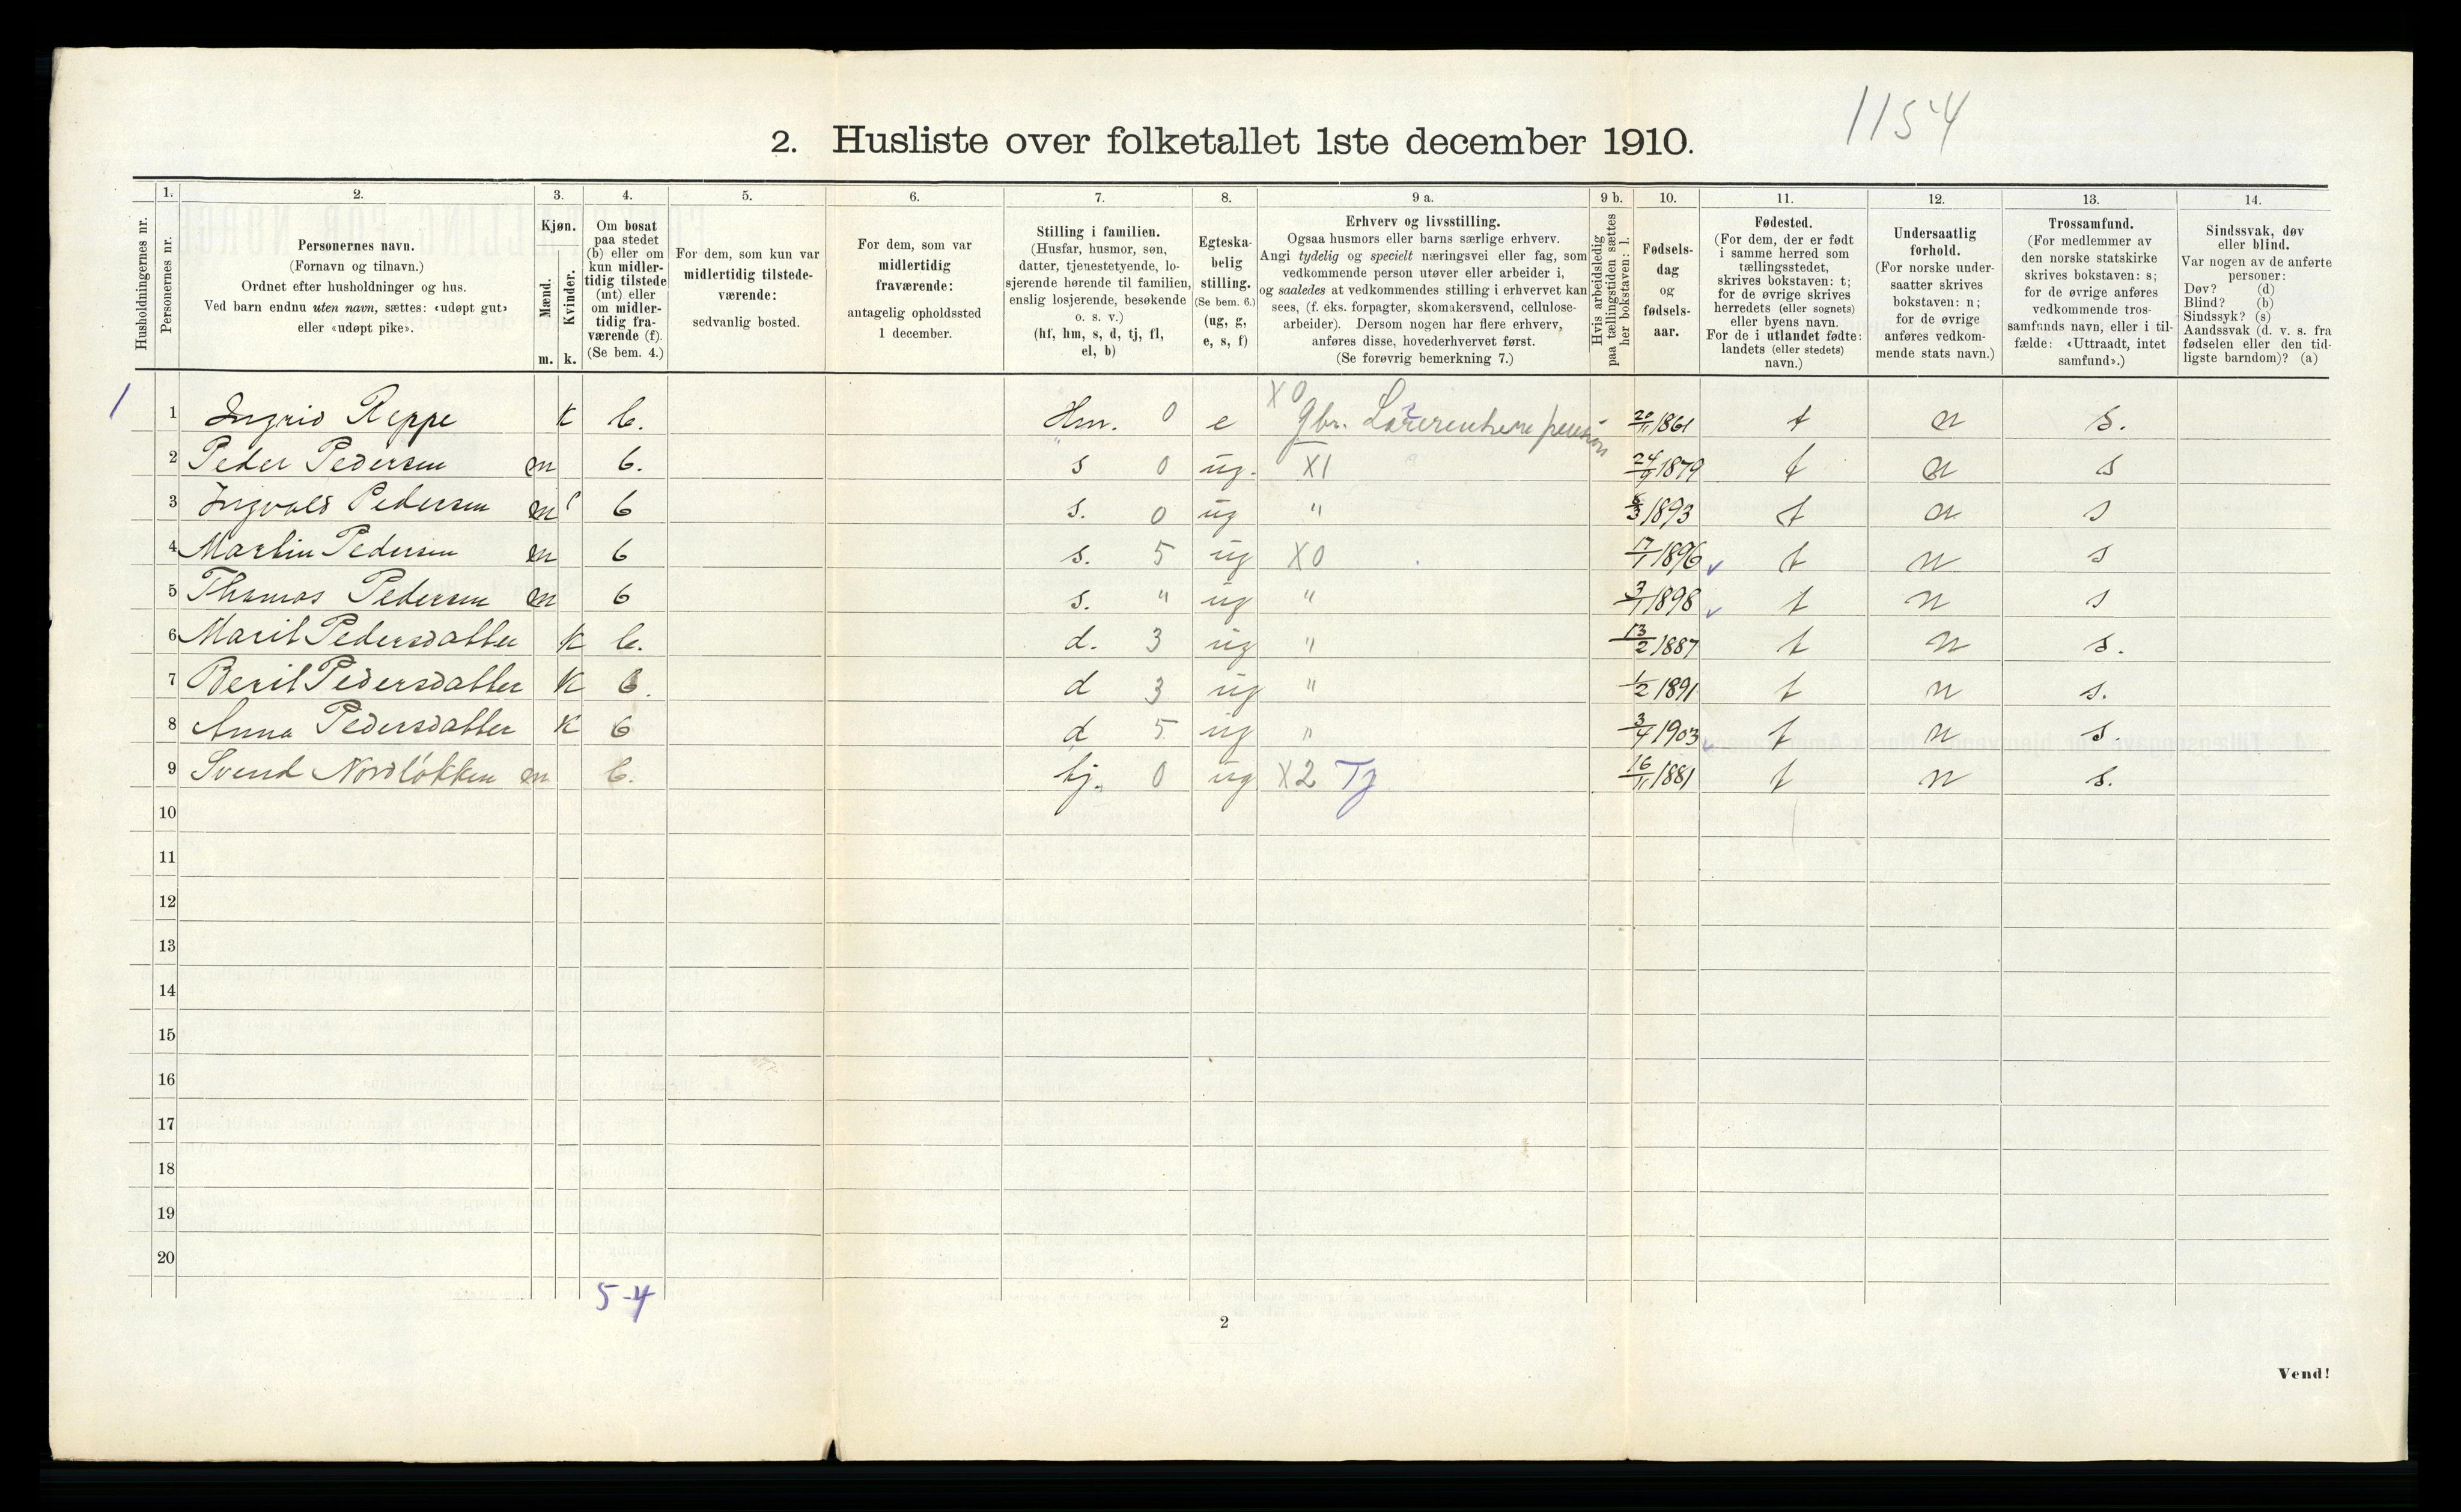 1154
2. Husliste over folketallet 1ste december 1910.
Husholdningernes nr.
1.
Personernes nr.
2.
Personernes navn.
(Fornavn og tilnavn.)
Ordnet efter husholdninger og hus.
Ved barn endnu uten navn, sættes: «udøpt gut»
eller «udøpt pike».
3.
Kjøn.
Mænd.
Kvinder.
m. k.
4.
Om bosat
paa stedet
(b) eller om
kun midler-
tidig tilstede
(mt) eller
om midler-
tidig fra-
værende (f).
(Se bem. 4.)
5.
For dem, som kun var
midlertidig tilstede-
værende:
sedvanlig bosted.
6.
For dem, som var
midlertidig
fraværende:
antagelig opholdssted
1 december.
7.
Stilling i familien.
(Husfar, husmor, søn,
datter, tjenestetyende, lo-
sjerende hørende til familien,
enslig losjerende, besøkende
o. s. v.)
(hf, hm, s, d, tj, fl,
el, b)
8.
Egteska-
belig
stilling.
(Se bem. 6.)
(ug, g,
e, s, f)
9 a.
Erhverv og livsstilling.
Ogsaa husmors eller barns særlige erhverv.
Angi tydelig og specielt næringsvei eller fag, som
vedkommende person utøver eller arbeider i,
og saaledes at vedkommendes stilling i erhvervet kan
sees, (f. eks. forpagter, skomakersvend, cellulose-
arbeider). Dersom nogen har flere erhverv,
anføres disse, hovederhvervet først.
(Se forøvrig bemerkning 7.)
9 b.
Hvis arbeidsledig
paa tællingstiden sættes
her bokstaven: l.
10.
Fødsels-
dag
og
fødsels-
aar.
11.
Fødested.
(For dem, der er født
i samme herred som
tællingsstedet,
skrives bokstaven: t;
for de øvrige skrives
herredets (eller sognets)
eller byens navn.
For de i utlandet fødte:
landets (eller stedets)
navn.)
12.
Undersaatlig
forhold.
(For norske under-
saatter skrives
bokstaven: n;
for de øvrige
anføres vedkom-
mende stats navn.)
13.
Trossamfund.
(For medlemmer av
den norske statskirke
skrives bokstaven: s;
for de øvrige anføres
vedkommende tros-
samfunds navn, eller i til-
fælde: «Uttraadt, intet
samfund».)
14.
Sindssvak, døv
eller blind.
Var nogen av de anførte
personer:
Døv? (d)
Blind? (b)
Sindssyk? (s)
Aandssvak (d. v. s. fra
fødselen eller den tid-
ligste barndom)? (a)
1 1 Ingrid Reppe k b. Hm. 0 e X0 Gbr. pension 20/11 1861 t n s.
2 Peder Pedersen m b. s 0 ug. X1 24/9 1879 t n s
3 Ingvald Pedersen m b s. 0 ug " 8/3 1893 t n s
4 Martin Pedersen m b s. 5 ug X0 17/1 1896 t n s
5 Thomas Pedersen m b s. " ug " 3/1 1898 t n s
6 Marit Pedersdatter k b. d. 3 ug " 13/2 1887 t n s.
7 Berit Pedersdatter k b. d 3 ug " 1/2 1891 t n s.
8 Anna Pedersdatter k b d 5 ug " 3/4 1903 t n s.
9 Svend Nordløkken m b. tj. 0 ug X2 Tj 16/11 1881 t n s.
10
11
12
13
14
15
16
17
18
19
20
5-4
2
Vend!